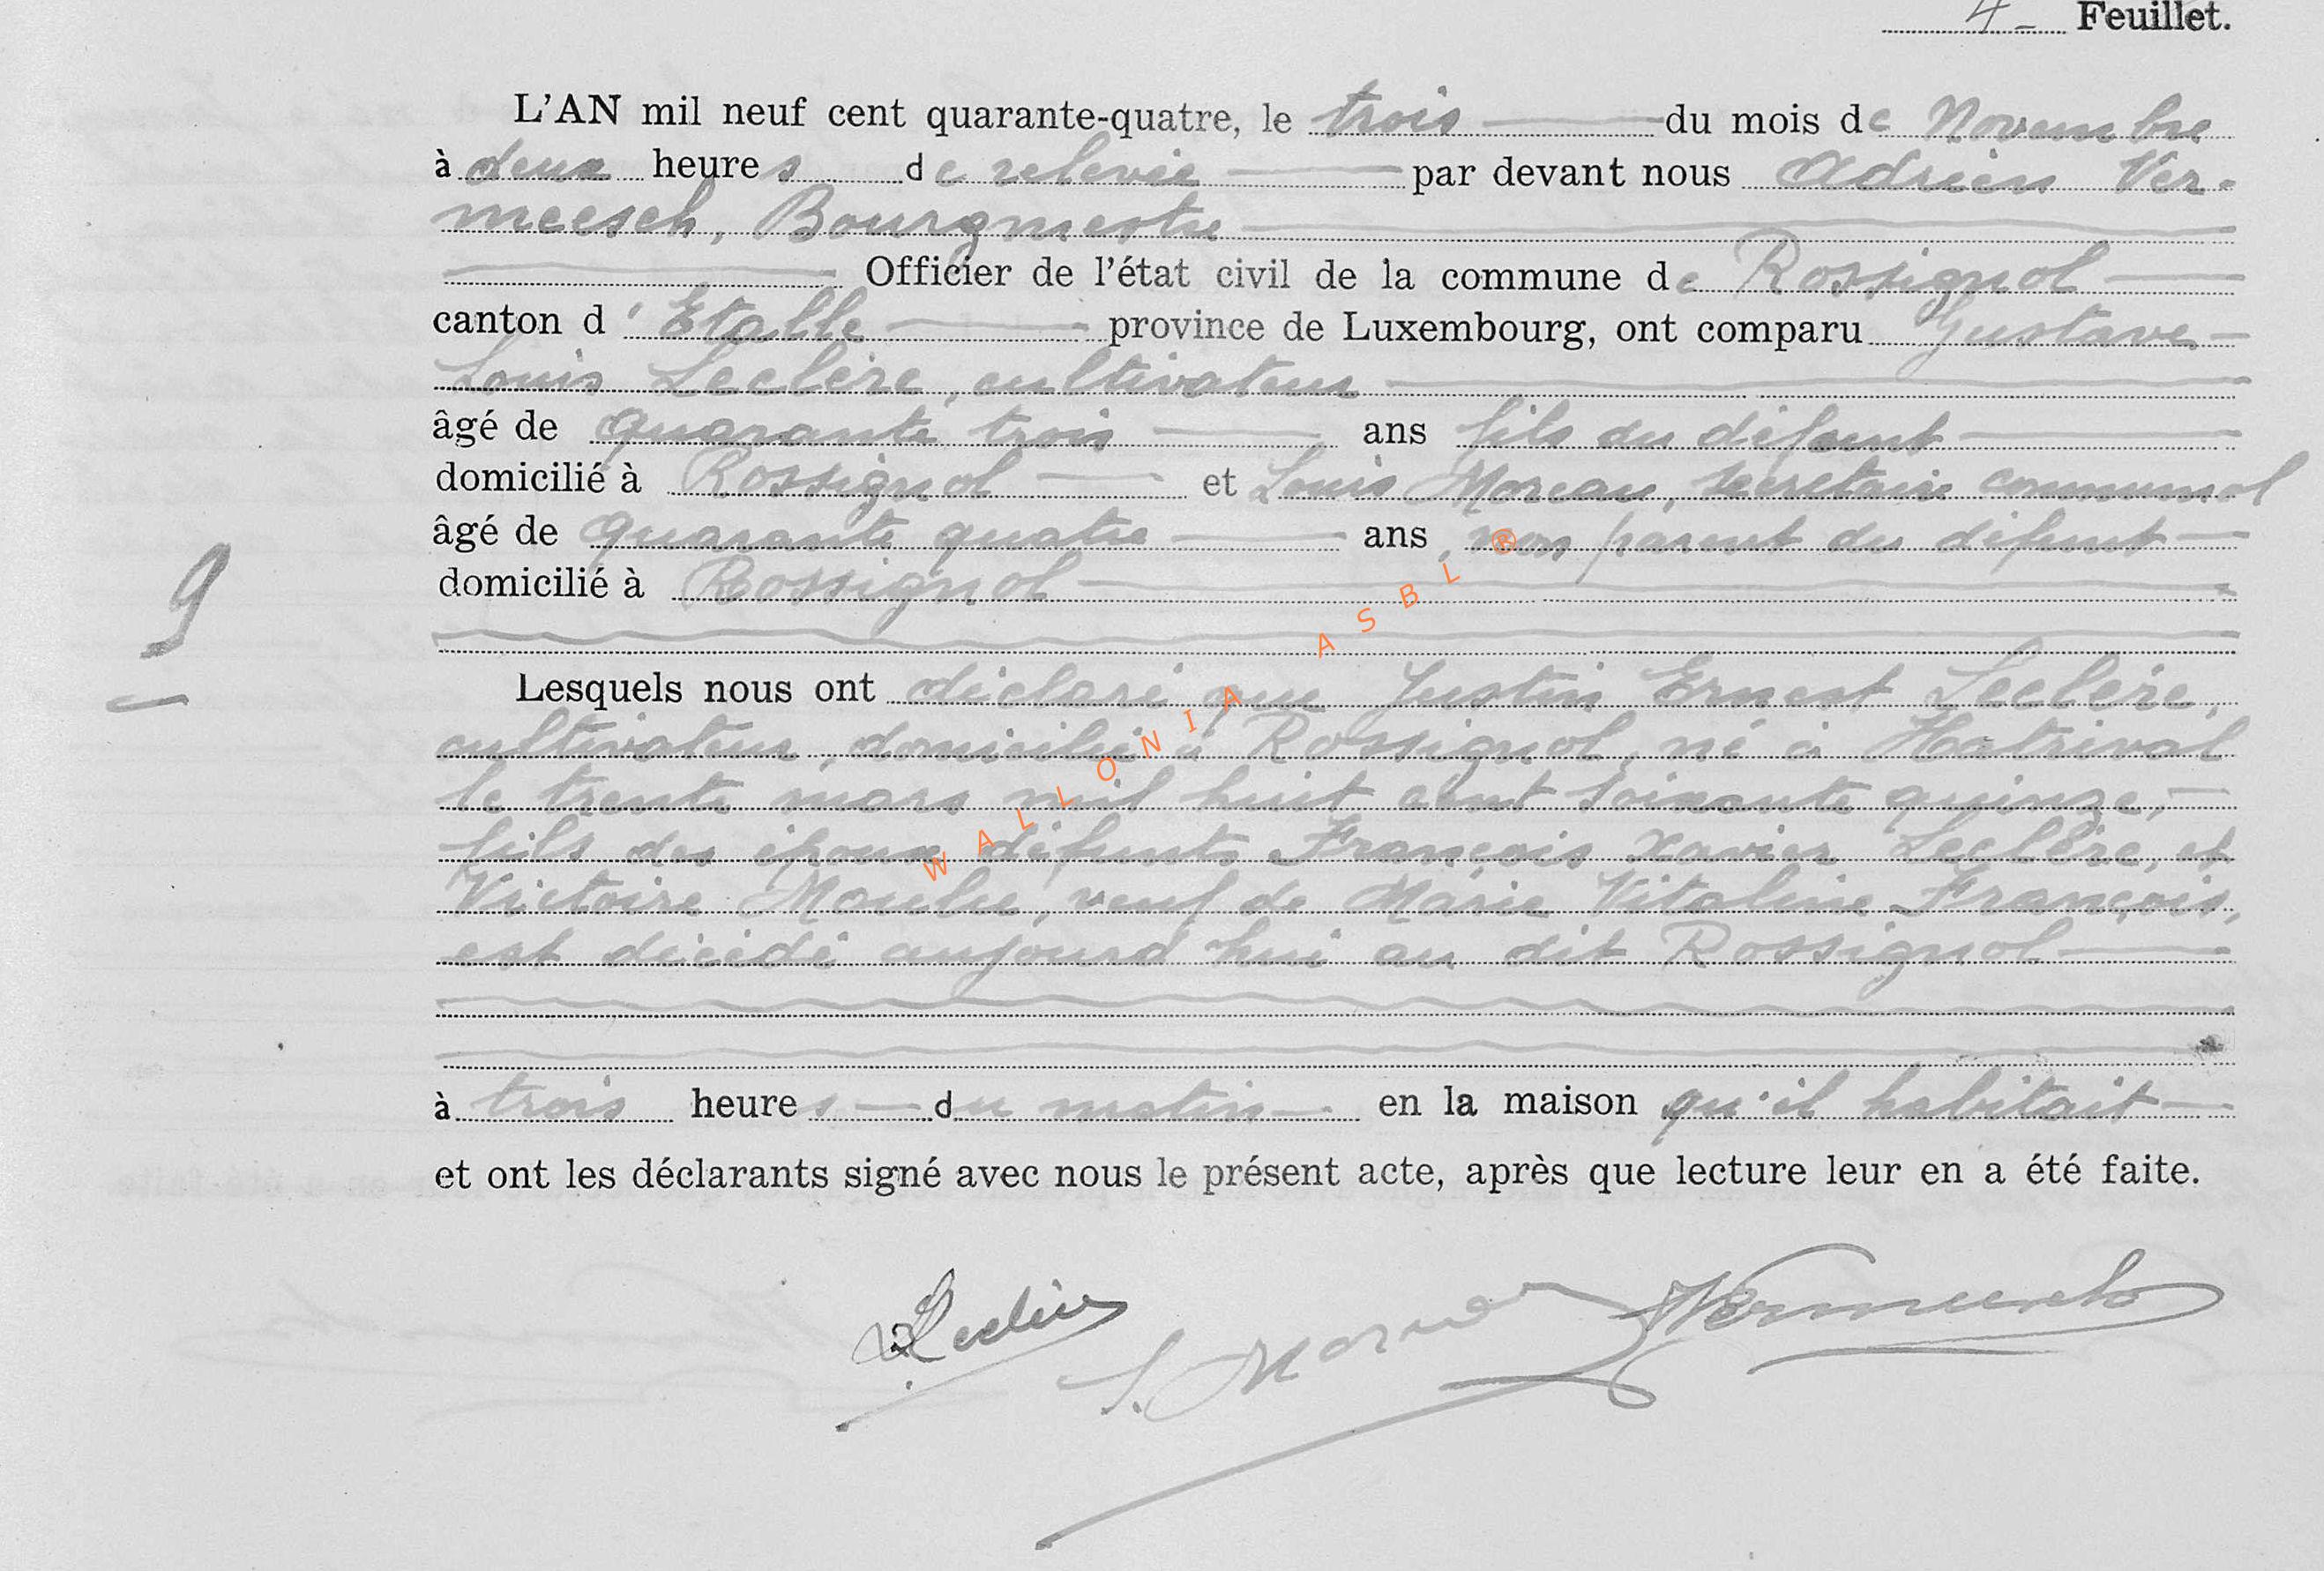 4 - Feuillet.
L'AN mil neuf cent quarante-quatre, le trois du mois de Novembre
à deux heures de relevée par devant nous Adrien Ver-
meesch, Bourgmestre
Officier de l'état civil de la commune de Rossignol
canton d'Etalle province de Luxembourg, ont comparu Gustave
Louis Leclère, cultivateur
âgé de quarante trois ans fils du défunt
domicilié à Rossignol et Louis Moreau, secrétaire communal
âgé de quarante quatre ans, non parent du défunt
domicilié à Rossignol
9
Lesquels nous ont déclaré que Justin Ernest Leclère,
cultivateur, domicilié à Rossignol, né à Hatrival
le trente mars mil huit cent soixante quinze,
fils des époux défunts François Xavier Leclère, et
Victoire Moulu, veuf de Marie Vitaline François,
est décédé aujourd'hui au dit Rossignol
à trois heures du matin en la maison qu'il habitait
et ont les déclarants signé avec nous le présent acte, après que lecture leur en a été faite.
Leclère L. Moreau Vermeesch
WALLONIA ASBL ®